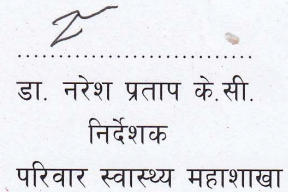 डा. नरेश प्रताप के.सी.
निर्देशक
परिवार स्वास्थ्य महाशाखा